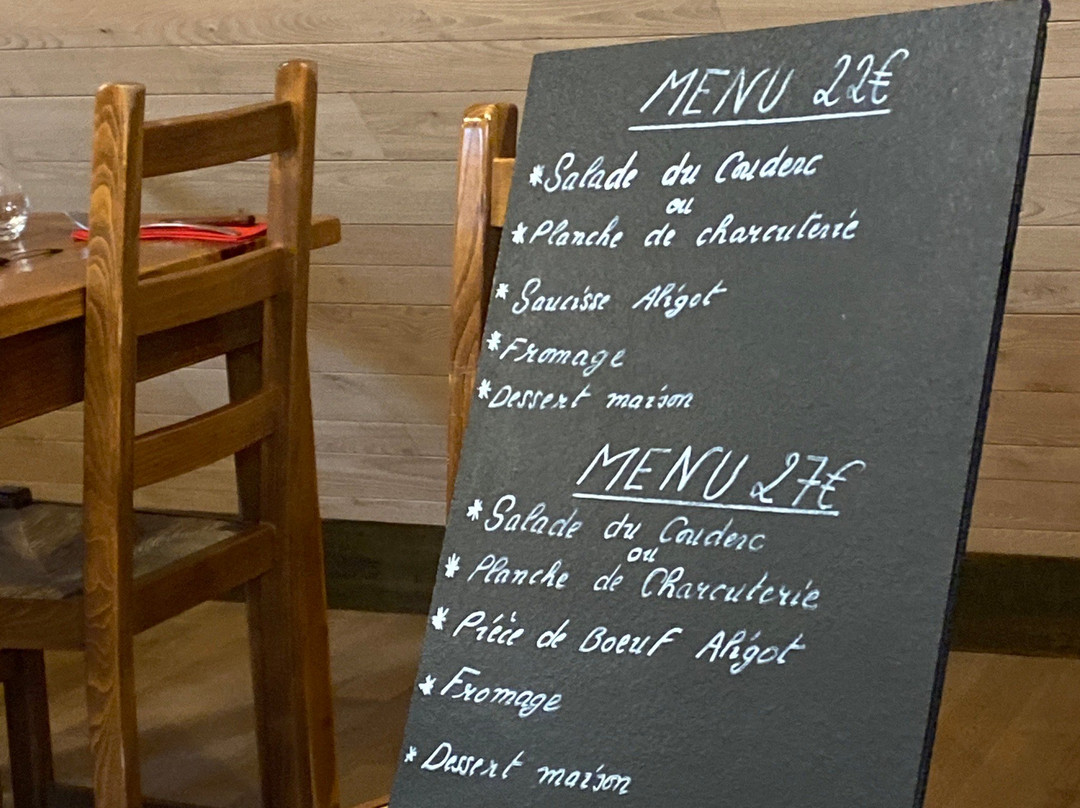 MENU 22€
*Salade du Couderc
ou
*Planche de charcuterie
*Saucisse Aligot
*Fromage
*Dessert maison
MENU 27€
*Salade du Couderc
ou
*Planche de Charcuterie
*Pièce de Boeuf Aligot
*Fromage
*Dessert maison